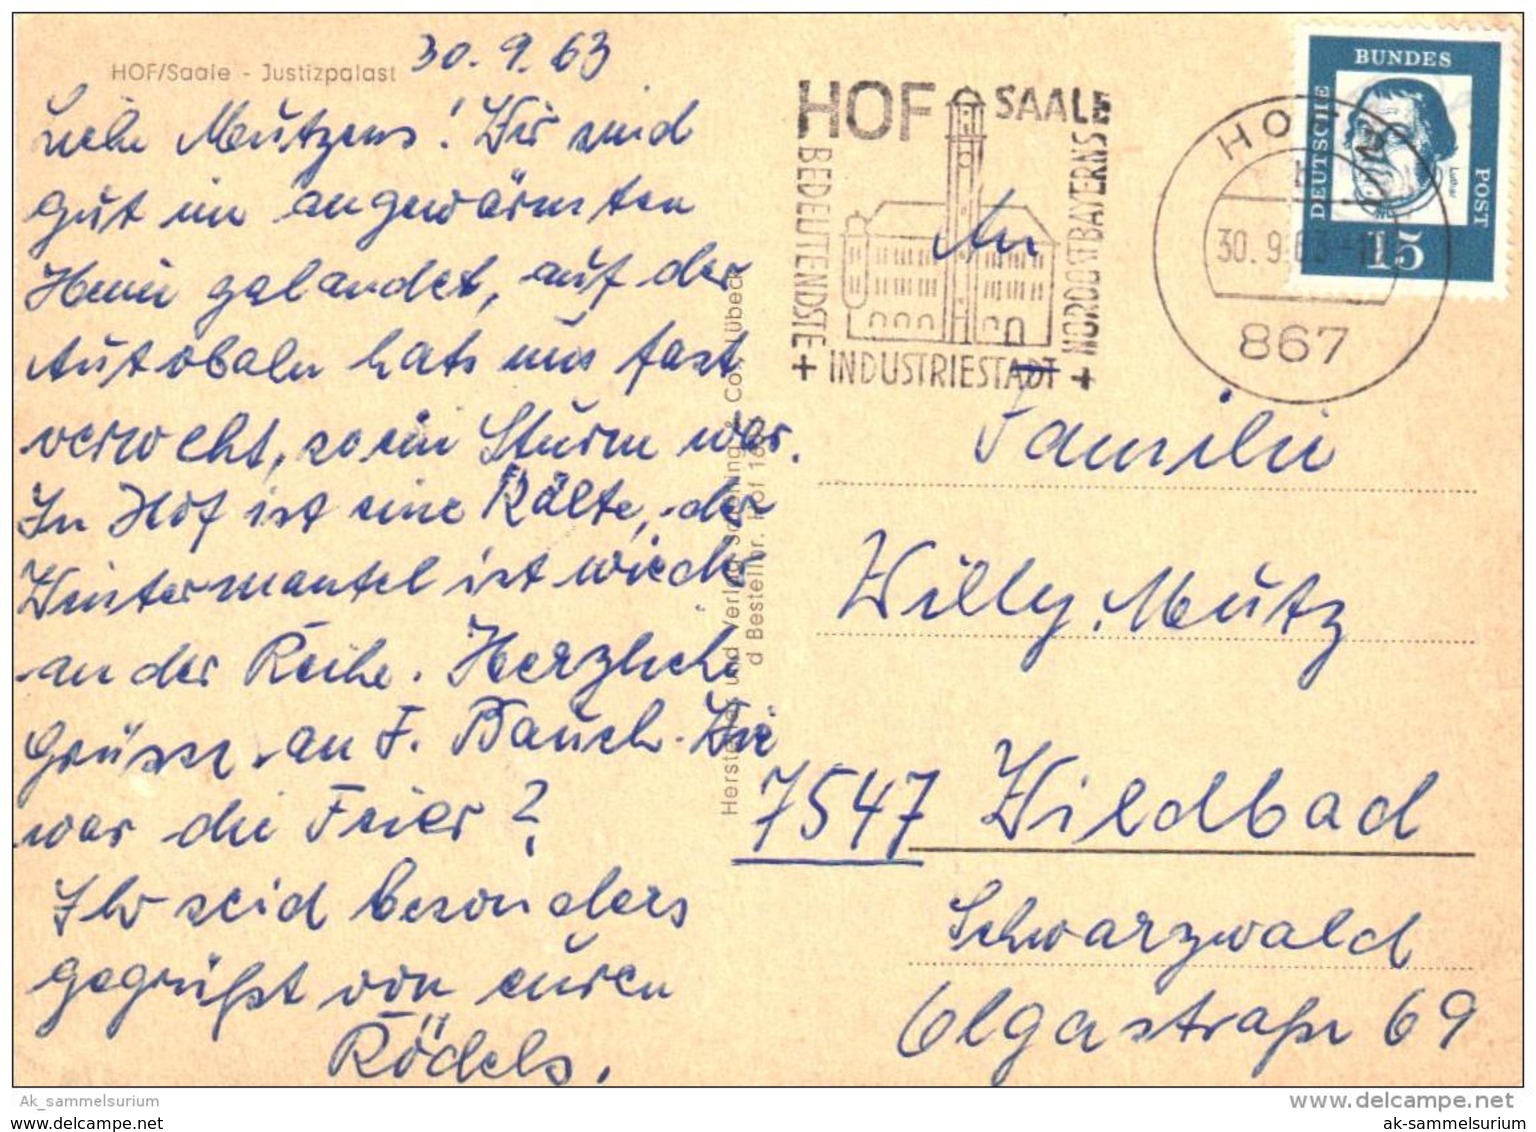 HOF/Saale - Justizpalast
30.9.63
Liebe Mutzens! Wir sind
gut im angewärmten
Heim gelandet, auf der
Autobahn hats uns fast
verweht, so ein Sturm war.
In Hof ist eine Kälte, der
Wintermantel ist wieder
an der Reihe. Herzliche
Grüsse an F. Bauch. Wie
war die Feier?
Ihr seid besonders
gegrüßt von euren
Rödels.
Herstellungs und Verlag Schöning & Co., Lübeck
d Bestellnr. Hof
HOF SAALE
BEDEUTENDSTE
NORDOSTBAYERNS
+ INDUSTRIESTADT +
HOF
30.9.63
867
DEUTSCHE
BUNDES
POST
Luther
15
An
Familie
Willy Mutz
7547 Wildbad
Schwarzwald
Olgastraße 69
Ak_sammelsurium
delcampe.net
www.delcampe.net
ak-sammelsurium